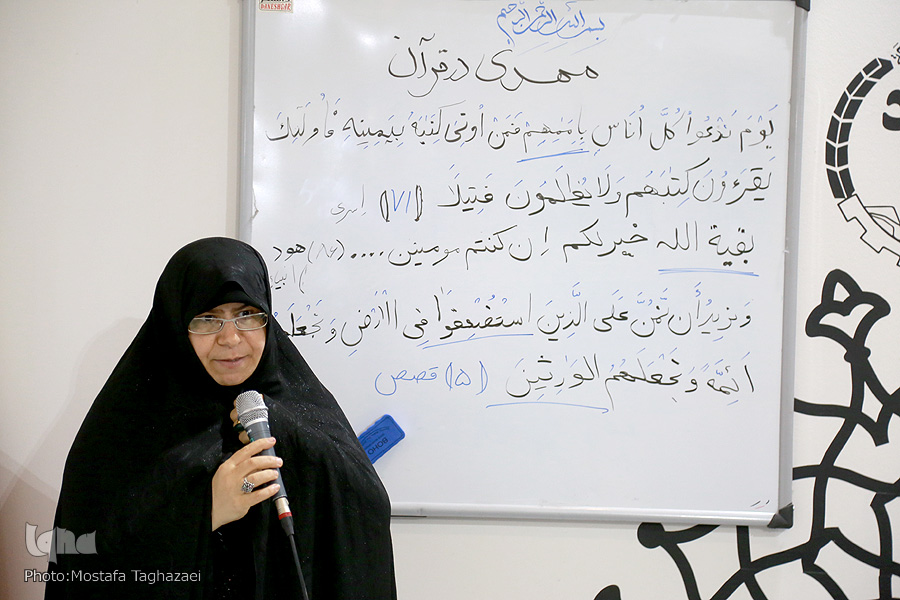 DANESHGAR
بسم الله الرحمن الرحیم
مهدی در قرآن
یَوْمَ نَدْعُواْ کُلَّ أُنَاسٍ بِإِمَمِهِمْ فَمَنْ أُوتِیَ کِتَٰبَهُ بِیَمِینِهِ فَأُولَٰئِکَ
یَقْرَءُونَ کِتَٰبَهُم وَلَا یُظْلَمُونَ فَتِیلَاً (۷۱) اسری
بقیة الله خیرلکم اِن کنتم مومنین.... (۸۶) هود
وَنُرِیدُ أَن نَّمُنَّ عَلَی الَّذِینَ اسْتُضْعِفُوا فِی الْأَرْضِ وَ نَجْعَلَهُمْ
اَئِمَّةً وَ نَجْعَلَهُمُ الوَارِثِینَ (۵) قصص
BOHO
iqna
Photo:Mostafa Taghazaei